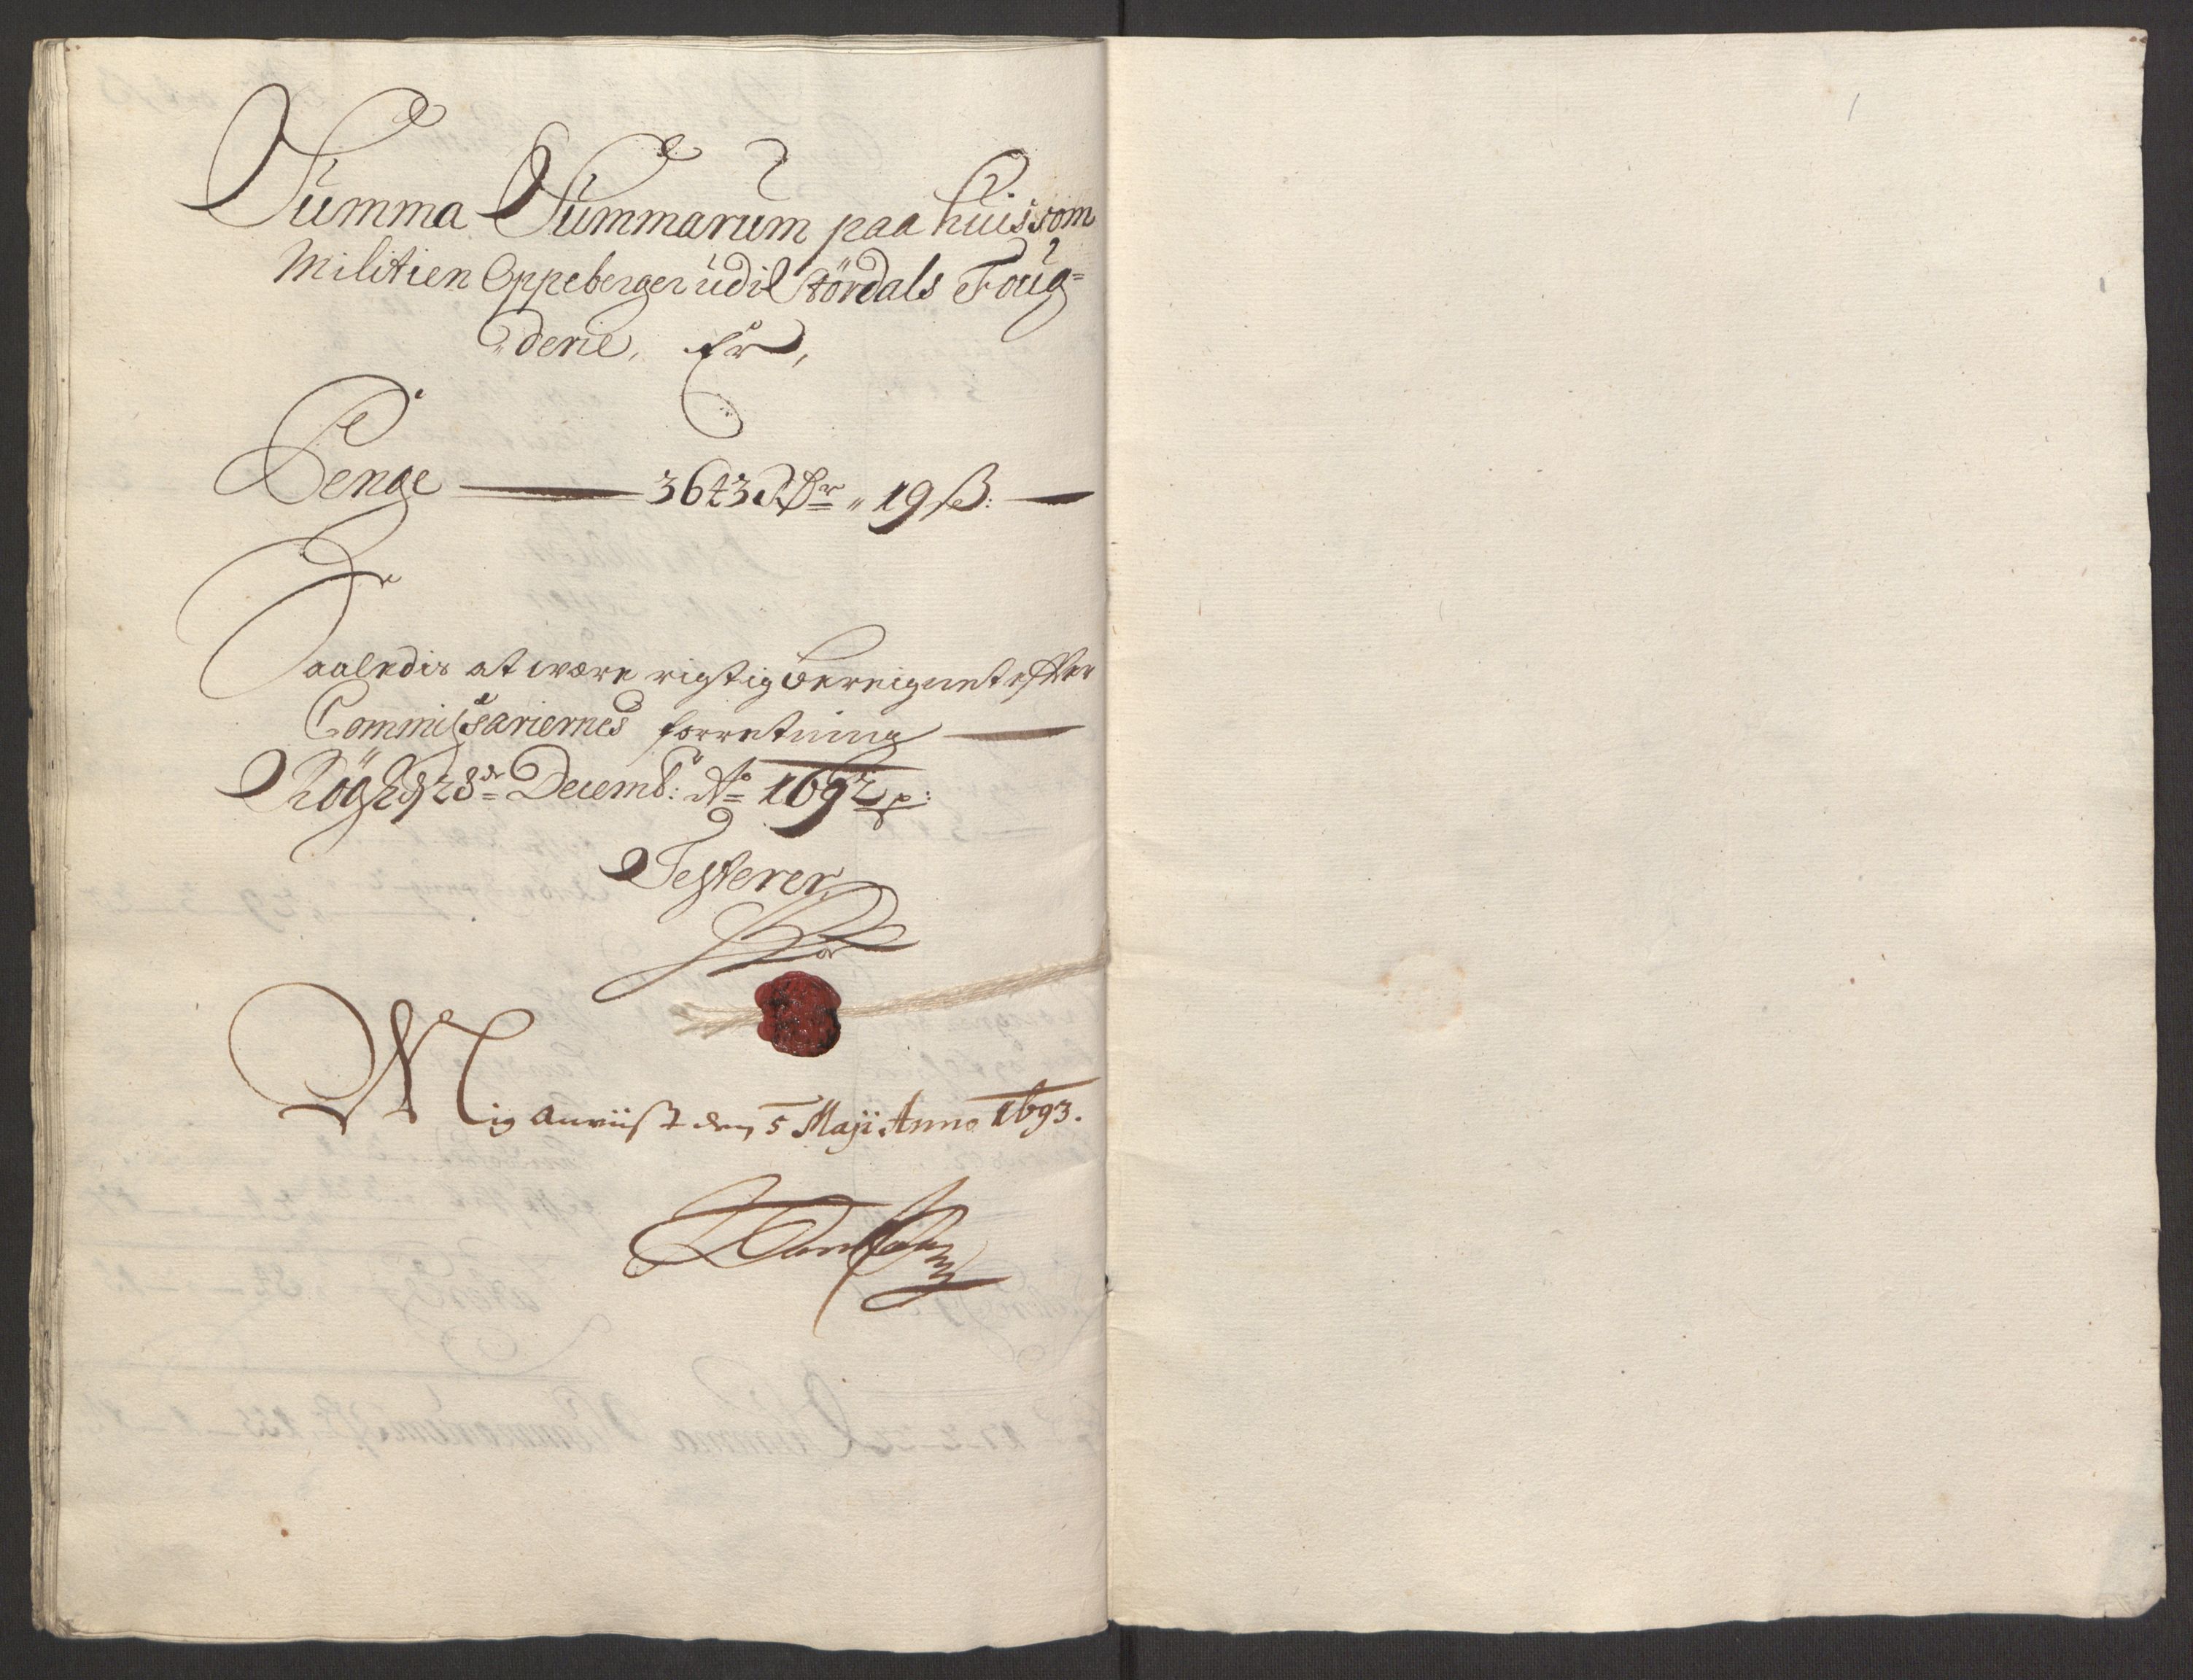 Summa Summarum paa huis som
Militien Oppeberger udi Størdals Foug=
derie, Er,
Penge 3643 Rdr „ 19 ß:
Saaledis at være rigtig bereignet effter
Commissariernes forretning
28de Decemb: Ao 1692 p:
Testerer
Mig anviist den 5 Maji Anno 1693.